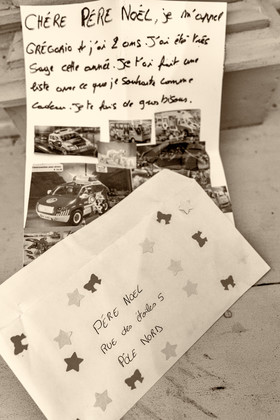 CHÉRE PÈRE NOËL, je m'appel
GRÉGORIO et j'ai 2 ans. J'ai été très
sage cette année. Je t'ai fait une
liste avec ce que je souhaite comme
cadeau. Je te fais de gros bisous.
PÈRE NOËL
RUE des étoiles 5
PÔLE NORD